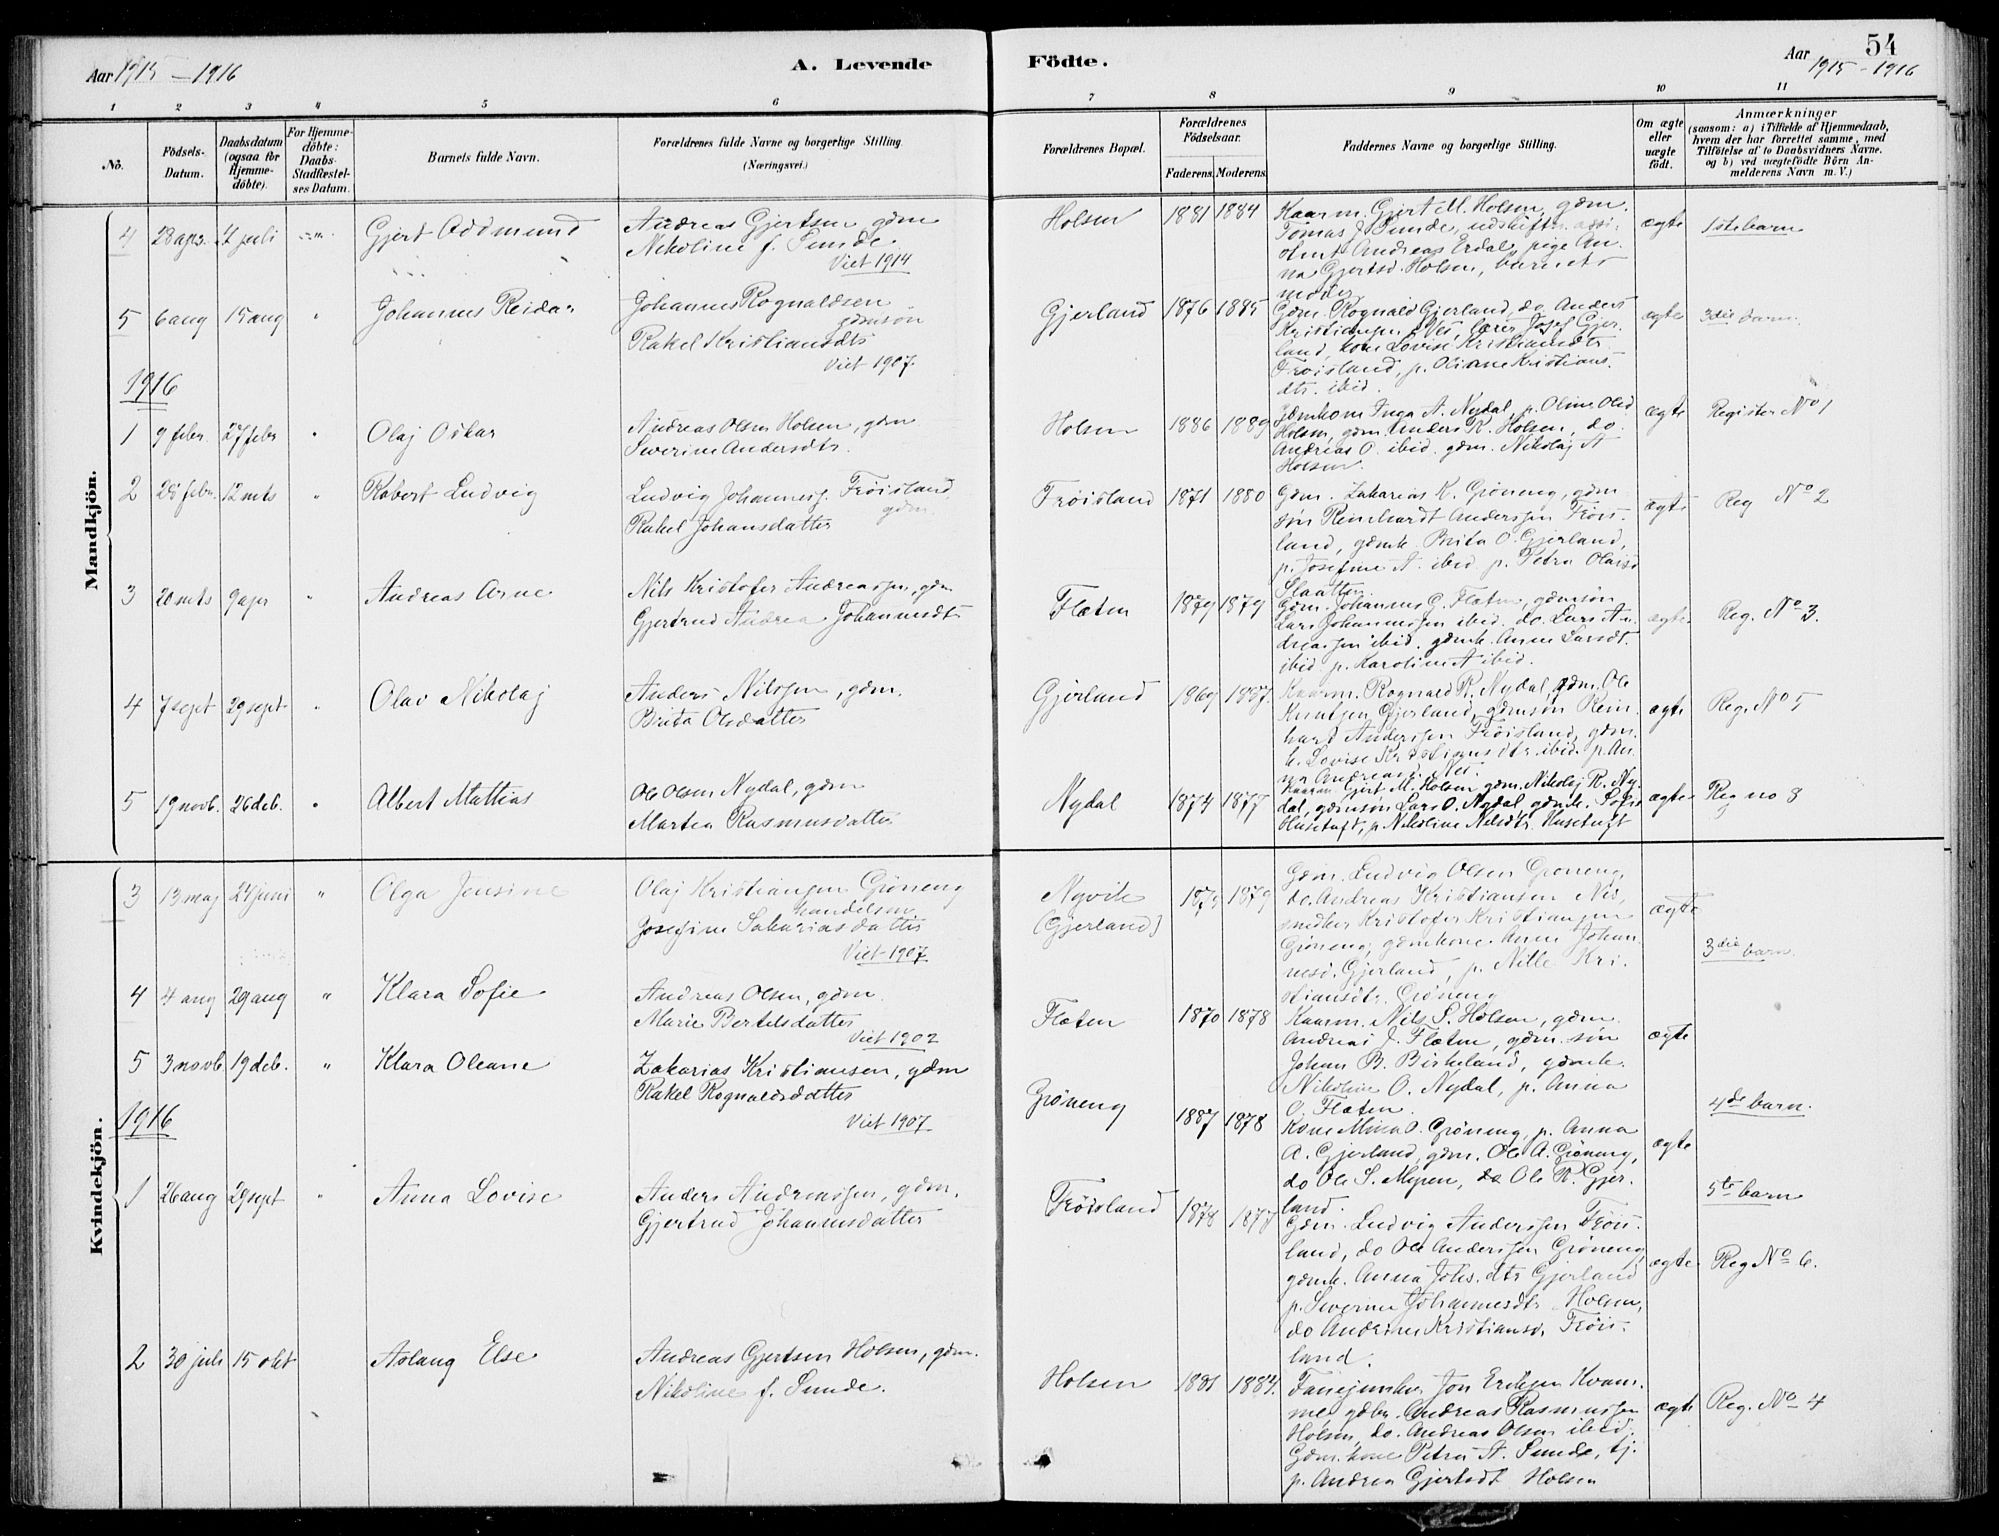 Aar 1915 – 1916
A. Levende
Födte.
Aar 1915 – 1916
54
1 2 3 4 5 6 7 8 9 10 11
Nö.
Födsels-Datum.
Daabsdatum (ogsaa for Hjemme-döbte).
For Hjemme-döbte: Daabs-Stadfæstel-ses Datum.
Barnets fulde Navn.
Forældrenes fulde Navne og borgerlige Stilling. (Næringsvei.)
Forældrenes Bopæl.
Forældrenes Födselsaar.
Faderens. Moderens.
Faddernes Navne og borgerlige Stilling.
Om ægte eller uægte födt.
Anmærkninger
(saasom: a) i Tilfælde af Hjemmedaab,
hvem der har forrettet samme, med
Tilföielse af to Daabsvidners Navne.
og b) ved uægtefödte Börn An-
melderens Navn m. V.)
Mandkjön.
4 28 apr. 4 juli Gjert Oddmund
Andreas Gjertsen gdm
Nikoline f. Sunde
Viet 1914
Holsen 1881 1884
Kaarm. Gjert M. Holsen, gdm.
Tomas J. Sunde, udskiftn. assi-
stent Andreas Erdal, pige An-
na Gjertsd. Holsen, barnets
moder
ægte 1ste barn
5 6 aug 15 aug " Johannes Reidar
Johannes Rognaldsen
gdmsøn
Rakel Kristiansdtr
Viet 1907.
Gjerland 1876 1885
Gdm. Rognald Gjerland, do Anders
Kristiansen Nes, lærer Josef Gjer-
land, kone Lovise Kristiansdtr
Frøisland, p. Oliane Kristians-
dtr. ibid.
ægte 3die barn.
1916
1 9 febr. 27 febr " Olaj Oskar
Andreas Olsen Holsen, gdm
Severine Andersdtr.
Holsen 1886 1889
Gdmkone Inga A. Nydal, p. Oline Olsd
Holsen, gdm. Anders R. Holsen, do.
Andreas O. ibid. gdm. Nikolaj A
Holsen.
ægte Register No 1
2 28 febr. 12 mts " Robert Ludvig
Ludvig Johannesf. Frøisland
gdm.
Rakel Johansdatter
Frøisland 1871 1880
Gdm. Zakarias K. Grøneng, gdm
søn Reinhardt Anderssen Frøis-
land, gdmk. Brita O. Gjerland,
p. Josefine A. ibid p. Petra Olaisd
Slaatten.
ægte Reg No 2
3 20 mts 9 apr " Andreas Arne
Nils Kristofer Andreassen, gdm
Gjertrud Andrea Johannsdtr
Flæten 1879 1879
Gdm. Johannes G. Flæten, gdmsøn
Lars Johannessen ibid. do. Lars An-
dreassen ibid. gdmk. Anne Larsdt.
ibid p. Karoline A ibid.
ægte Reg. No 3.
4 7 sept 29 sept " Olav Nikolaj
Anders Nilssen, gdm.
Brita Olsdatter
Gjerland 1869 1887.
Kaarm. Rognald R. Nydal, gdm. Ole
Knutsen Gjerland, gdmsøn Rein-
hard Anderssen Frøisland, gdm.
k. Lovise Kristiansdtr ibid. p. An-
na Andreasd. Nes.
ægte Reg. No 5
5 19 novb. 26 deb. " Albert Mattias
Ole Olsen Nydal, gdm
Martea Rasmusdatter
Nydal 1874 1877
Kaarm Gjert M. Holsen gdm. Nikolaj R. Ny-
dal, gdmsøn Lars O. Nydal, gdmk. Sofie
Husetuft, p. Nikoline Nilsdtr. Husetuft
ægte Reg no 8
Kvindekjön.
3 13 maj 24 juni " Olga Jensine
Olaj Kristiansen Grøneng
handelsm
Josefine Sakariasdatter
Viet 1907
Nyvik
(Gjerland)
1879 1879
Gdm. Ludvig Olsen Grøneng,
do. Andreas Kristiansen Nes,
snedker Kristofer Kristiansen
Grøneng, gdmkone Anne Johan-
nesd. Gjerland, p. Nille Kri-
stiansdtr. Grøneng
ægte 3die barn.
4 4 aug 29 aug " Klara Sofie
Andreas Olsen, gdm.
Marie Bertelsdatter
Viet 1902
Flæten 1870 1878
Kaarm. Nils S. Holsen, gdm.
Andreas J. Flæten, gdm. søn
Johan B. Birkeland, gdmk.
Nikoline O. Nydal, p. Anna
O. Flæten.
ægte 4de barn.
5 3 novb. 19 deb. " Klara Oleane
Zakarias Kristiansen, gdm
Rakel Rognaldsdatter
Viet 1907
Grøneng 1887 1878
Kone Mina O. Grøneng, p. Anna
A. Gjerland, gdm. Ole A. Grøneng,
do Ole S. Myren, do Ole R. Gjer-
land.
ægte 5te barn
1916
1 26 aug 29 sept " Anna Lovise
Anders Andreassen, gdm.
Gjertrud Johannesdatter
Frøisland 1878 1877
Gdm. Ludvig Anderssen Frøis-
land, do Ole Anderssen Grøneng,
gdmk. Anna Johs.dtr Gjerland
p. Severine Johannesdtr Holsen,
do Andrine Kristiansd. Frøis-
land.
ægte Reg No 6.
2 30 juli 15 okt Aslaug Else
Andreas Gjertsen Holsen, gdm.
Nikoline f. Sunde.
Holsen 1881 1884.
Fanejunker Jon Eriksen Kvam-
me, gdbr. Andreas Rasmussen
Holsen, do. Andreas Olsen ibid.
Gdm. kone Petra A. Sunde, tj.
p. Andrea Gjertsdt Holsen
ægte Reg. No 4